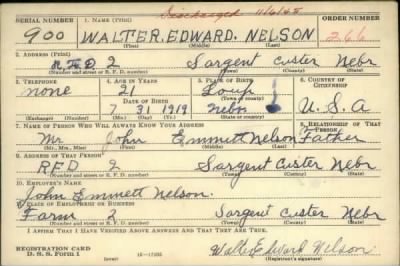 Discharged 11/6/45
SERIAL NUMBER 1. NAME (Print) ORDER NUMBER
900 WALTER. EDWARD. NELSON 266
(First) (Middle) (Last)
2. ADDRESS (Print)
R.F.D 2 Sargent Custer Nebr
(Number and street or R. F. D. number) (Town) (County) (State)
3. TELEPHONE 4. AGE IN YEARS 5. PLACE OF BIRTH 6. COUNTRY OF CITIZENSHIP
none 21 Loup
DATE OF BIRTH (Town or county)
7 31 1919 Nebr U.S.A
(Exchange) (Number) (Mo.) (Day) (Yr.) (State or country)
7. NAME OF PERSON WHO WILL ALWAYS KNOW YOUR ADDRESS 8. RELATIONSHIP OF THAT PERSON
Mr. John Emmett Nelson Father
(Mr., Mrs., Miss) (First) (Middle) (Last)
9. ADDRESS OF THAT PERSON
RFD 2 Sargent Custer Nebr
(Number and street or R. F. D. number) (Town) (County) (State)
10. EMPLOYER'S NAME
John Emmett Nelson.
11. PLACE OF EMPLOYMENT OR BUSINESS
Farm 2 Sargent Custer Nebr
(Number and street or R. F. D. number) (Town) (County) (State)
I AFFIRM THAT I HAVE VERIFIED ABOVE ANSWERS AND THAT THEY ARE TRUE.
REGISTRATION CARD
D. S. S. Form 1 16-17105 Walter Edward Nelson
(Registrant's signature)